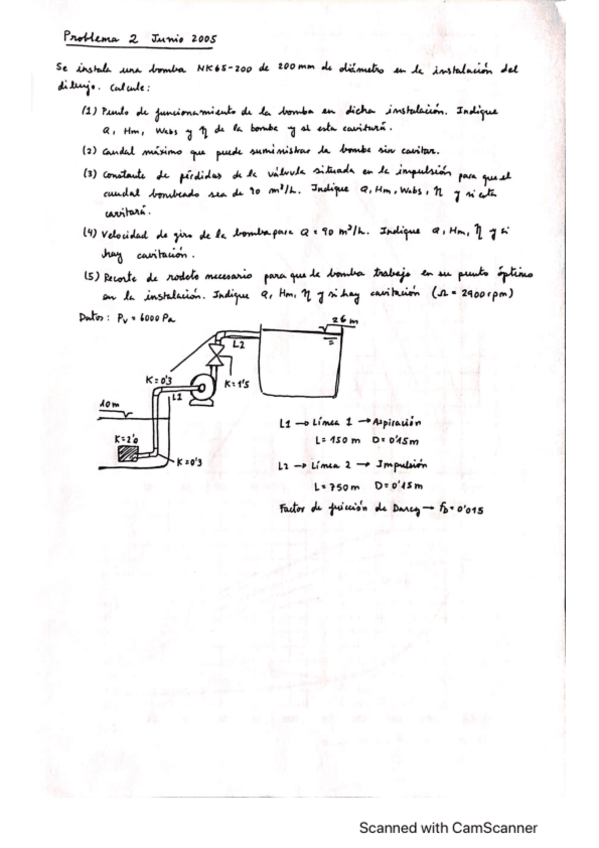 Problema 2 Junio 2005
Se instala una bomba NK65-200 de 200 mm de diámetro en la instalación del
dibujo. Calcule:
(1) Punto de funcionamiento de la bomba en dicha instalación. Indique
Q, Hm, Wabs y η de la bomba y si esta cavitará.
(2) Caudal máximo que puede suministrar la bomba sin cavitar.
(3) Constante de pérdidas de la válvula situada en la impulsión para que el
caudal bombeado sea de 90 m³/h. Indique Q, Hm, Wabs, η y si esta
cavitará.
(4) Velocidad de giro de la bomba para Q = 90 m³/h. Indique Q, Hm, η y si
hay cavitación.
(5) Recorte de rodete necesario para que la bomba trabaje en su punto óptimo
en la instalación. Indique Q, Hm, η y si hay cavitación (Ω = 2900 rpm)
Datos: Pv = 6000 Pa
26 m
L2
K=0'3
K=1'5
L1
10m
K=2'0
K=0'3
L1 → Línea 1 → Aspiración
L= 150 m D=0'15 m
L2 → Línea 2 → Impulsión
L= 750 m D=0'15 m
Factor de fricción de Darcy → fD = 0'015
Scanned with CamScanner